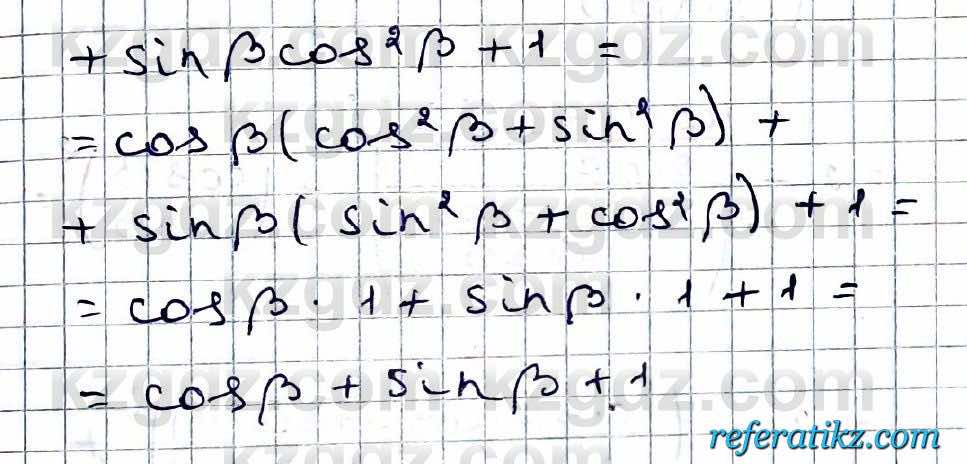 + sin β cos² β + 1 =
= cos β (cos² β + sin² β) +
+ sin β ( sin² β + cos² β) + 1 =
= cos β · 1 + sin β · 1 + 1 =
= cos β + sin β + 1
referatikz.com